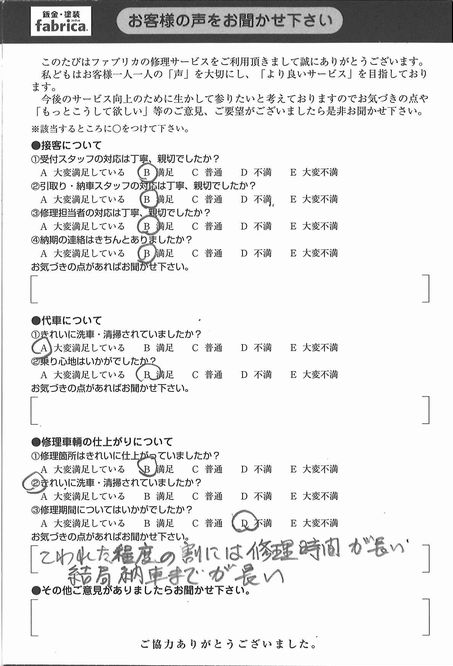 鈑金・塗装
fabrica.
お客様の声をお聞かせ下さい
このたびはファブリカの修理サービスをご利用頂きまして誠にありがとうございます。
私どもはお客様一人一人の「声」を大切にし、「より良いサービス」を目指しており
ます。
今後のサービス向上のために生かして参りたいと考えておりますのでお気づきの点や
「もっとこうして欲しい」等のご意見、ご要望がございましたら是非お聞かせ下さい。
※該当するところに〇をつけて下さい。
●接客について
①受付スタッフの対応は丁寧、親切でしたか?
A 大変満足している B 満足 C 普通 D 不満 E 大変不満
②引取り・納車スタッフの対応は丁寧、親切でしたか?
A 大変満足している B 満足 C 普通 D 不満 E 大変不満
③修理担当者の対応は丁寧、親切でしたか?
A 大変満足している B 満足 C 普通 D 不満 E 大変不満
④納期の連絡はきちんとありましたか?
A 大変満足している B 満足 C 普通 D 不満 E 大変不満
お気づきの点があればお聞かせ下さい。
●代車について
①きれいに洗車・清掃されていましたか?
A 大変満足している B 満足 C 普通 D 不満 E 大変不満
②乗り心地はいかがでしたか?
A 大変満足している B 満足 C 普通 D 不満 E 大変不満
お気づきの点があればお聞かせ下さい。
●修理車輌の仕上がりについて
①修理箇所はきれいに仕上がっていましたか?
A 大変満足している B 満足 C 普通 D 不満 E 大変不満
②きれいに洗車・清掃されていましたか?
A 大変満足している B 満足 C 普通 D 不満 E 大変不満
③修理期間についてはいかがでしたか?
A 大変満足している B 満足 C 普通 D 不満 E 大変不満
お気づきの点があればお聞かせ下さい。
こわれた程度の割には修理時間が長い
結局納車までが長い
●その他ご意見がありましたらお聞かせ下さい。
ご協力ありがとうございました。